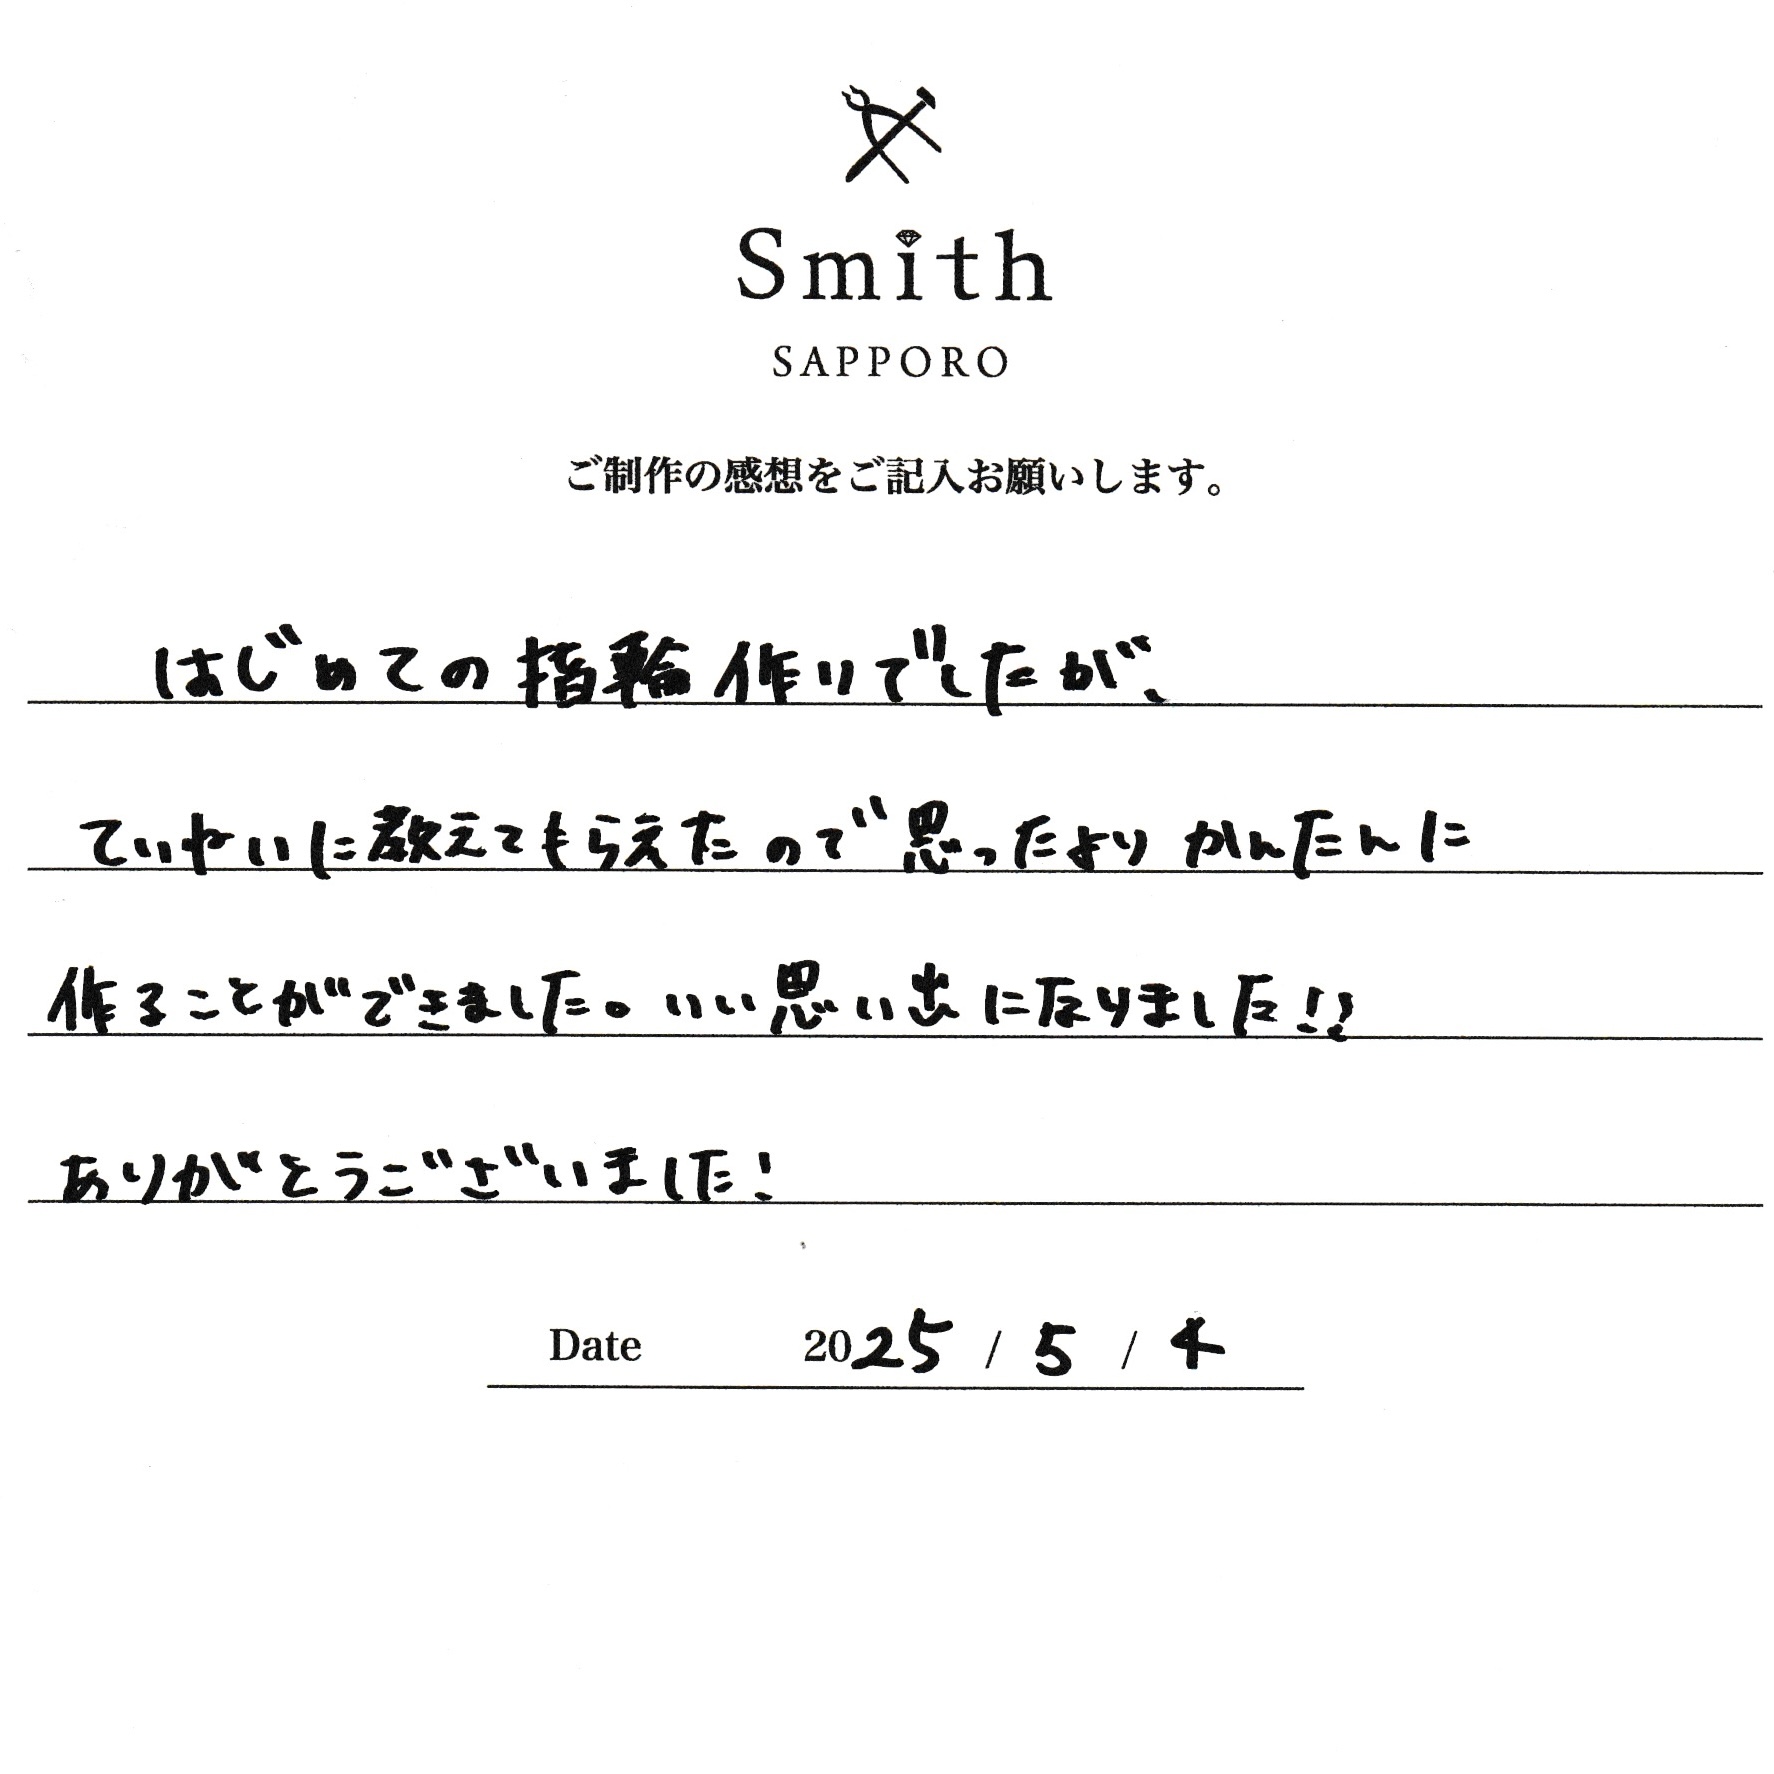 Smith
SAPPORO
ご制作の感想をご記入お願いします。
はじめての指輪作りでしたが、
ていねいに教えてもらえたので思ったよりかんたんに
作ることができました。いい思い出になりました!!
ありがとうございました!
Date 2025 / 5 / 4